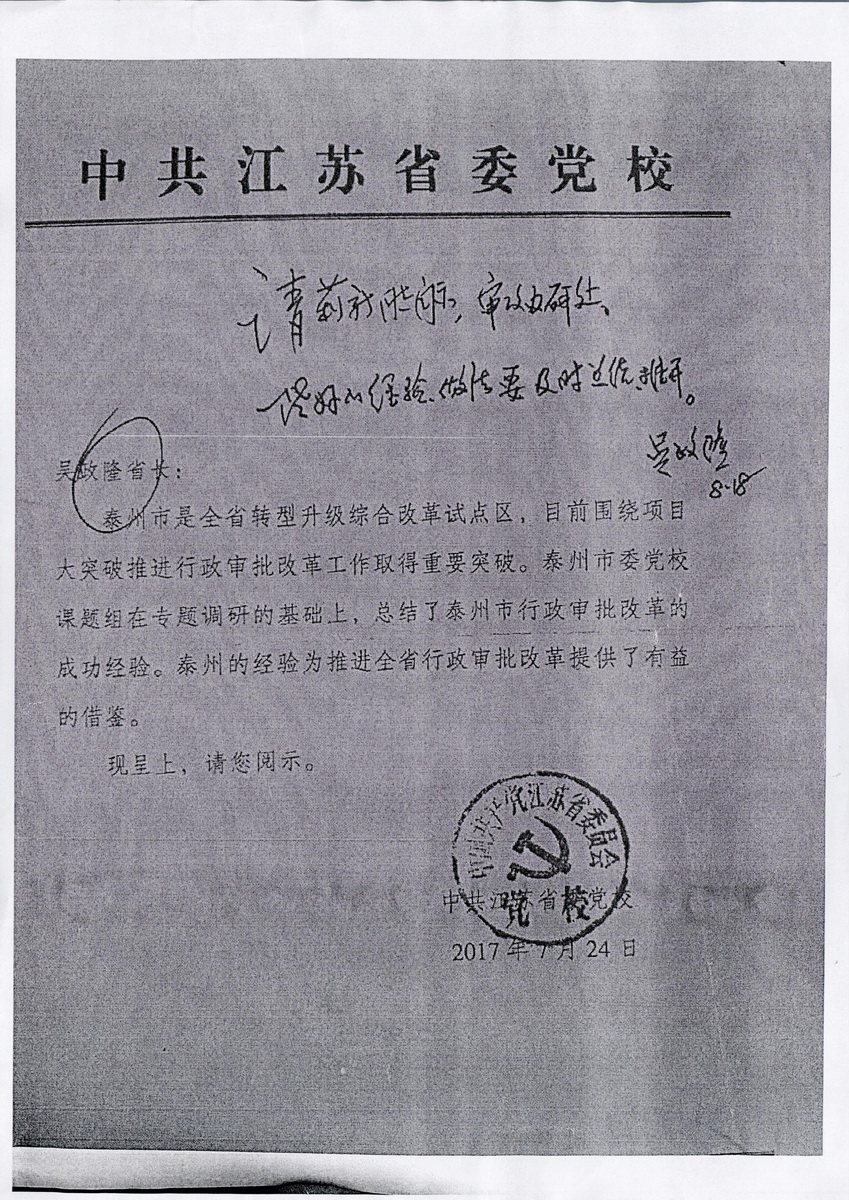 中共江苏省委党校
请莉新同志阅示，审改办研处、
好的经验、做法要及时总结、推开。
吴政隆
8.18
吴政隆省长：
泰州市是全省转型升级综合改革试点区，目前围绕项目
大突破推进行政审批改革工作取得重要突破。泰州市委党校
课题组在专题调研的基础上，总结了泰州市行政审批改革的
成功经验。泰州的经验为推进全省行政审批改革提供了有益
的借鉴。
现呈上，请您阅示。
中国共产党江苏省委员会
党校
中共江苏省委党校
2017年7月24日